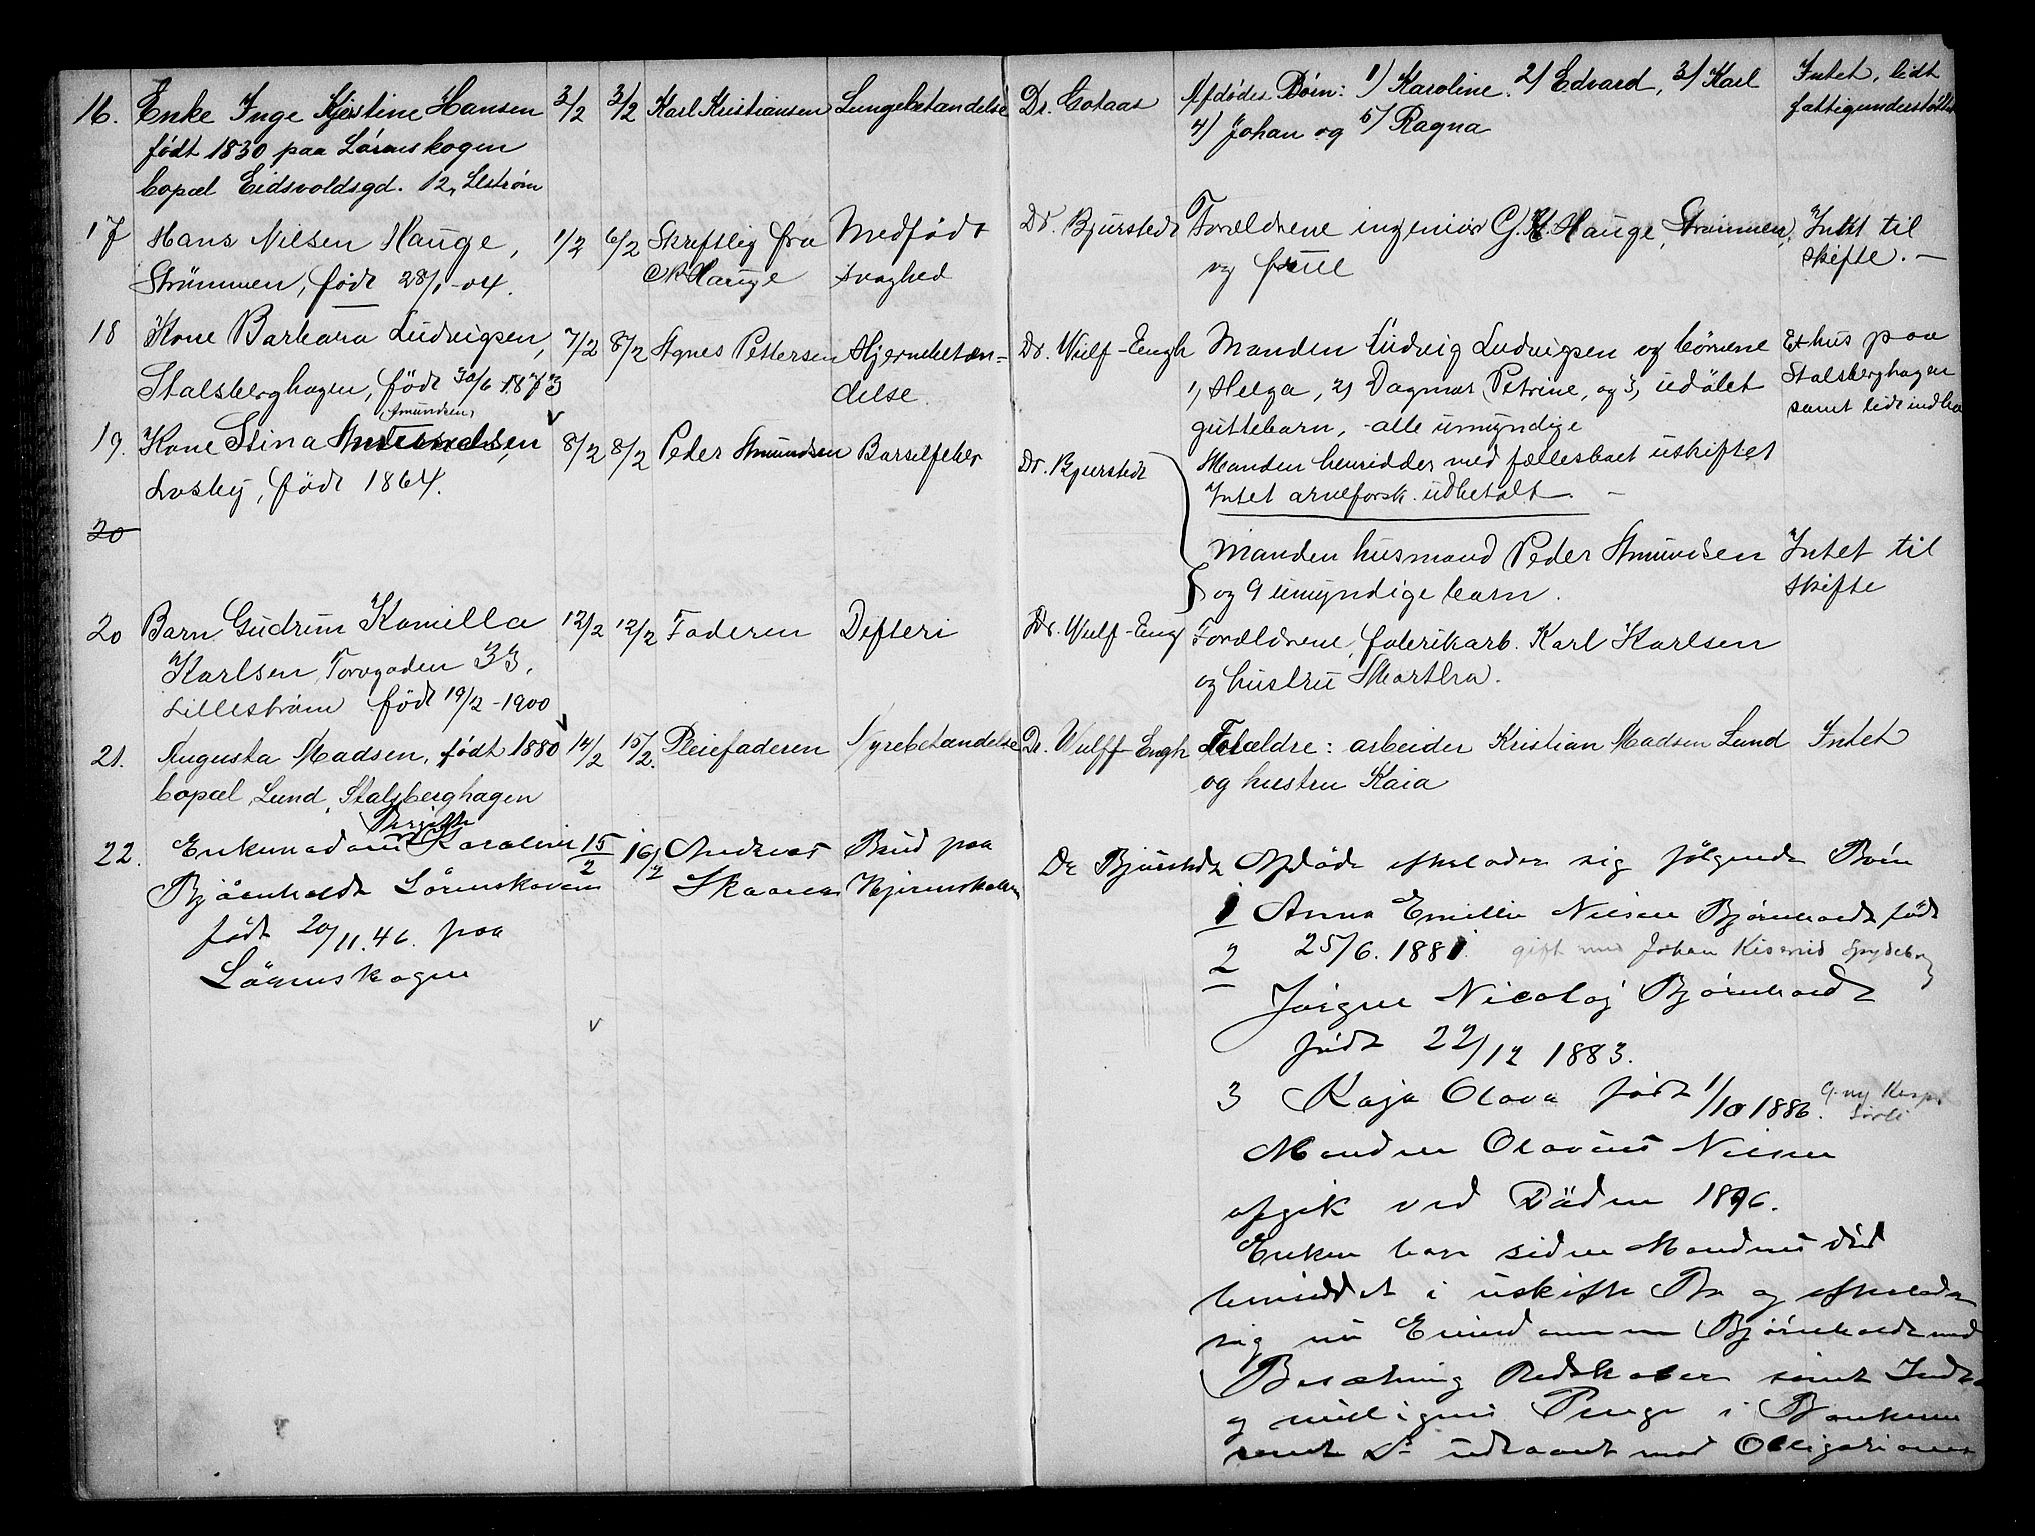 16. Enke Inge Kjestine Hansen 3/2 3/2 Karl Kristiansen Lungebetændelse Dr. Gotaas Afdødes Børn: 1) Karoline. 2) Edvard, 3) Karl Intet, lidt
født 1830 paa Lørenskogen 4) Johan og 5) Ragna fattigunderstøttelse
bopæl Eidsvoldsgd. 12, Llstrøm
17 Hans Nilsen Hauge, 1/2 6/2 Skriftlig fra Medfødt Dr. Bjurstedt Forældrene ingeniør G. Hauge, Strømmen, Intet til
Strømmen, født 28/1-04. Hauge svaghed og frue skifte. —
18 Kone Barbara Ludvigsen, 7/2 8/2 Agnes Pettersen Hjernebetæn- Dr. Wulf-Engh Manden Ludvig Ludvigsen og børnene Et hus paa
Stalsberghagen, født 30/6 1873 delse. 1, Helga, 2, Dagmar Petrine, og 3, udøbt Stalsberghagen
guttebarn, - alle umyndige samt lidt indbo
Manden hensidder med fællesboet uskiftet
Intet arveforsk. udbetalt. —
Amundsen,
19. Kone Stina 8/2 8/2 Peder Amundsen Barselfeber Dr. Bjurstedt
Losby, født 1864.
20
Manden husmand Peder Amundsen Intet til
og 9 umyndige barn. skifte
20 Barn Gudrun Kamilla 12/2 12/2 Faderen Difteri Dr. Wulf-Eng Forældrene, fabrikarb. Karl Karlsen
Karlsen, Torvgaden 33, og hustru Martha.
Lillestrøm født 19/2-1900
21. Augusta Madsen, født 1880 14/2 15/2. Pleiefaderen Nyrebetændelse Dr. Wulff-Engh Forældre: arbeider Kristian Madsen Lund Intet
bopæl Lund, Stalsberghagen og hustru Kaia
22. Enkemadam Karoline 15/2 16/2 Andreas Brud paa Dr Bjurstedt Afdøde efterlader sig følgende Børn
Bjørnholdt Lørenskoven Skaarer Hjerneskallen 1 Anna Emilie Nilsen Bjørnholdt født
født 20/11.46. paa 25/6. 1881. gift med Johan Spydeberg
Lørenskogen 2
Jørgen Nicolaj Bjørnholdt
født 22/12 1883.
3 Kaja Olava født 1/10 1886.
Manden Olavus Nilsen
afgik ved Døden 1896.
Enken har siden Mandens død
hensiddet i uskifte Bo og efterlader
sig nu Eiendommen Bjørnholdt med
Besætning Redskaber samt Indbo
og Penge i Banken
samt do udlaant mod Obligationer